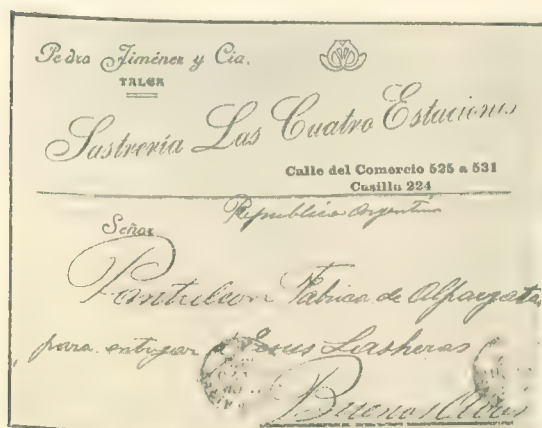 Pedro Jiménez y Cía.
TALCA
Sastrería Las Cuatro Estaciones
Calle del Comercio 525 a 531
Casilla 224
Republica Argentina
Señor
Pantaleon Fabrica de Alpargatas
para entregar a Jesus Lasheras
Buenos Aires